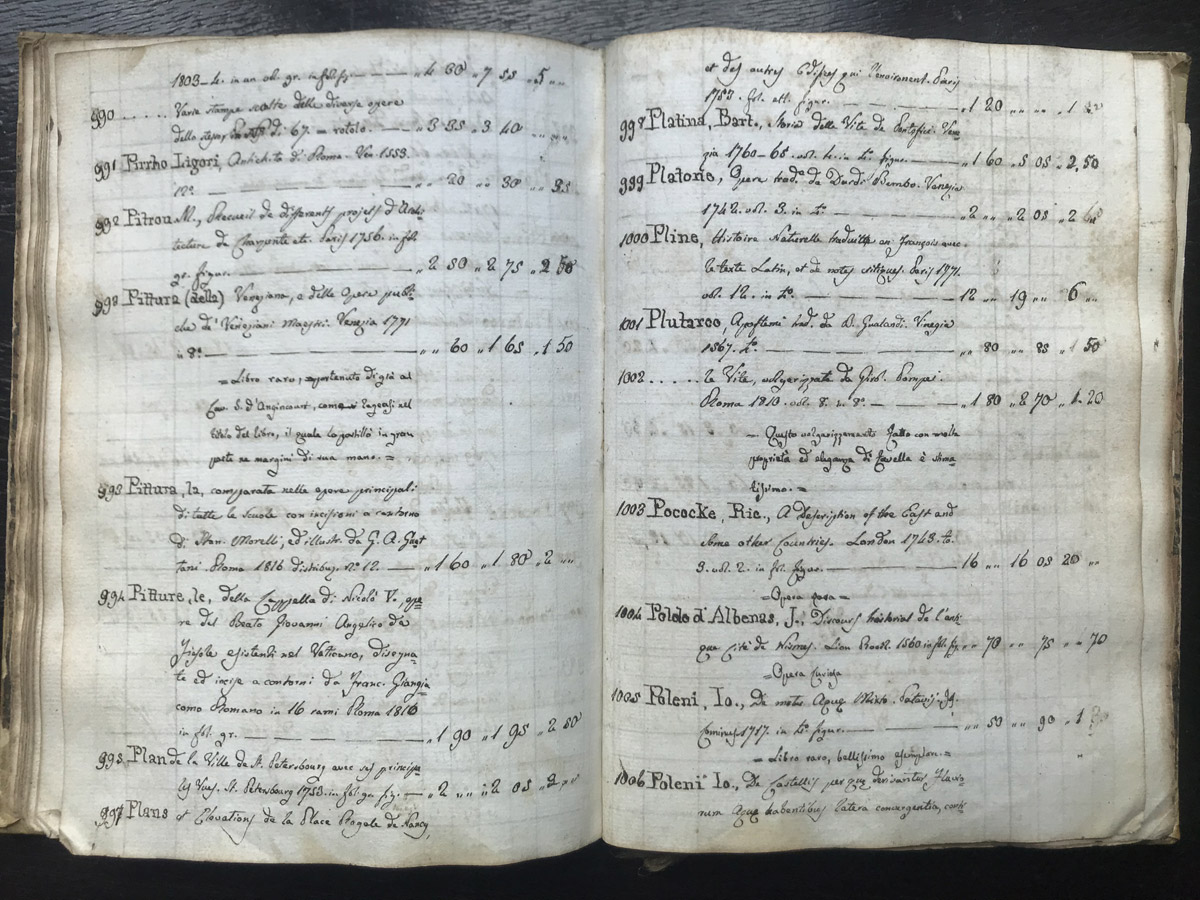 1803-4. in an ob. gr. in fol. fig. — „ 4 60 „ 7 55 „ 5 „ „
990 ...... Varie stampe scelte delle diverse opere
dello stesso di 67. in rotolo. — „ 3 35 „ 3 40
991 Pirrho Ligori, Antichità di Roma. Ven 1553.
12.° — „ „ 20 „ „ 30 „ 35
992 Pitrou M., Recueil de differents projets d'Archi-
tecture de Charpente etc. Paris 1756. in fol.
gr. figur. — „ 2 50 „ 2 75 „ 2 50
993 Pittura (della) Veneziana, e delle Opere publi-
che de' Veneziani Maestri. Venezia 1771
in 8.° — „ „ 60 „ 1 65 „ 1 50
= Libro raro, appartenuto di già al
Cav. S. d'Angincourt, come leggesi nel
titolo del libro, il quale lo postillò in gran
parte ne margini di sua mano. =
993 Pittura, la, comparata nelle opere principali
di tutte le Scuole con incisioni a contorno
di Fran. Morelli, ed illustr. da G. A. Guat
tani. Roma 1816 distribuz. N.° 12. — „ 1 60 „ 1 80 „ 2 „ „
994 Pitture, le, della Cappella di Nicolò V., ope
re del Beato Giovanni Angelico da
Fiesole esistenti nel Vaticano, disegna-
te ed incise a contorni da Franc. Giangia
como Romano in 16 rami Roma 1810
in fol. gr. — „ 1 90 „ 1 95 „ 2 50
995 Plan de la Ville de St. Petersbourg avec ses principa
les Vues. St. Petersbourg 1753. in fol. gr. fig. — „ 2 „ „ „ 2 05 „ 2
997 Plans et Elevations de la Place Royale de Nancy,
et des autres Edifices qui l'environent. Paris
1753. fol. atl. figur. — „ 1 20 „ „ „ „ 1
998 Platina, Bart., Storia delle Vite de Pontefici. Vene
zia 1760-65. vol. 4. in 4.° figur. — „ 1 60 „ 5 05 „ 2,50
999 Platone, Opere trad.e da Dardi Bembo. Venezia
1742. vol. 3. in 4.° — „ 2 „ „ „ 2 05 „ 2
1000 Pline, Histoire Naturelle traduitte en françois avec
le texte Latin, et de notes critiques. Paris 1771.
vol. 12. in 4.° — 12 „ „ 19 „ „ 6 „ „
1001 Plutarco, Apoftemi trad. da B. Gualandi. Vinegia
1567. 4.° — „ „ 80 „ „ 85 „ 1 50
1002 ...... le Vite, volgarizzate da Girol. Pompei.
Roma 1810. vol. 8. in 8.° — „ 1 80 „ 2 70 „ 1. 20
= Questo volgarizzamento fatto con molta
proprietà ed eleganza di favella è stima-
tissimo. =
1003 Pococke, Ric., A Description of the East and
some other Countries. London 1743. to.
3. vol. 2. in fol. figur. — 16 „ „ 16 05 20 „ „
= Opera rara =
1004 Poldo d'Albenas, J., Discours historial de l'anti
que Cité de Nismes. Lion 1560 in fol. fig. „ 70 „ „ 75 „ „ 70
= Opera curiosa
1005 Poleni, Io., De motu Aquæ Mixto. Patavii. Jo.
Cominus 1717. in 4.° figur. — „ „ 50 „ „ 90 „ 1
= Libro raro, bellissimo esemplar. =
1006 Poleni Io., De Castellis per quæ derivantur Fluvio
rum Aquæ habentibus latera convergentia,